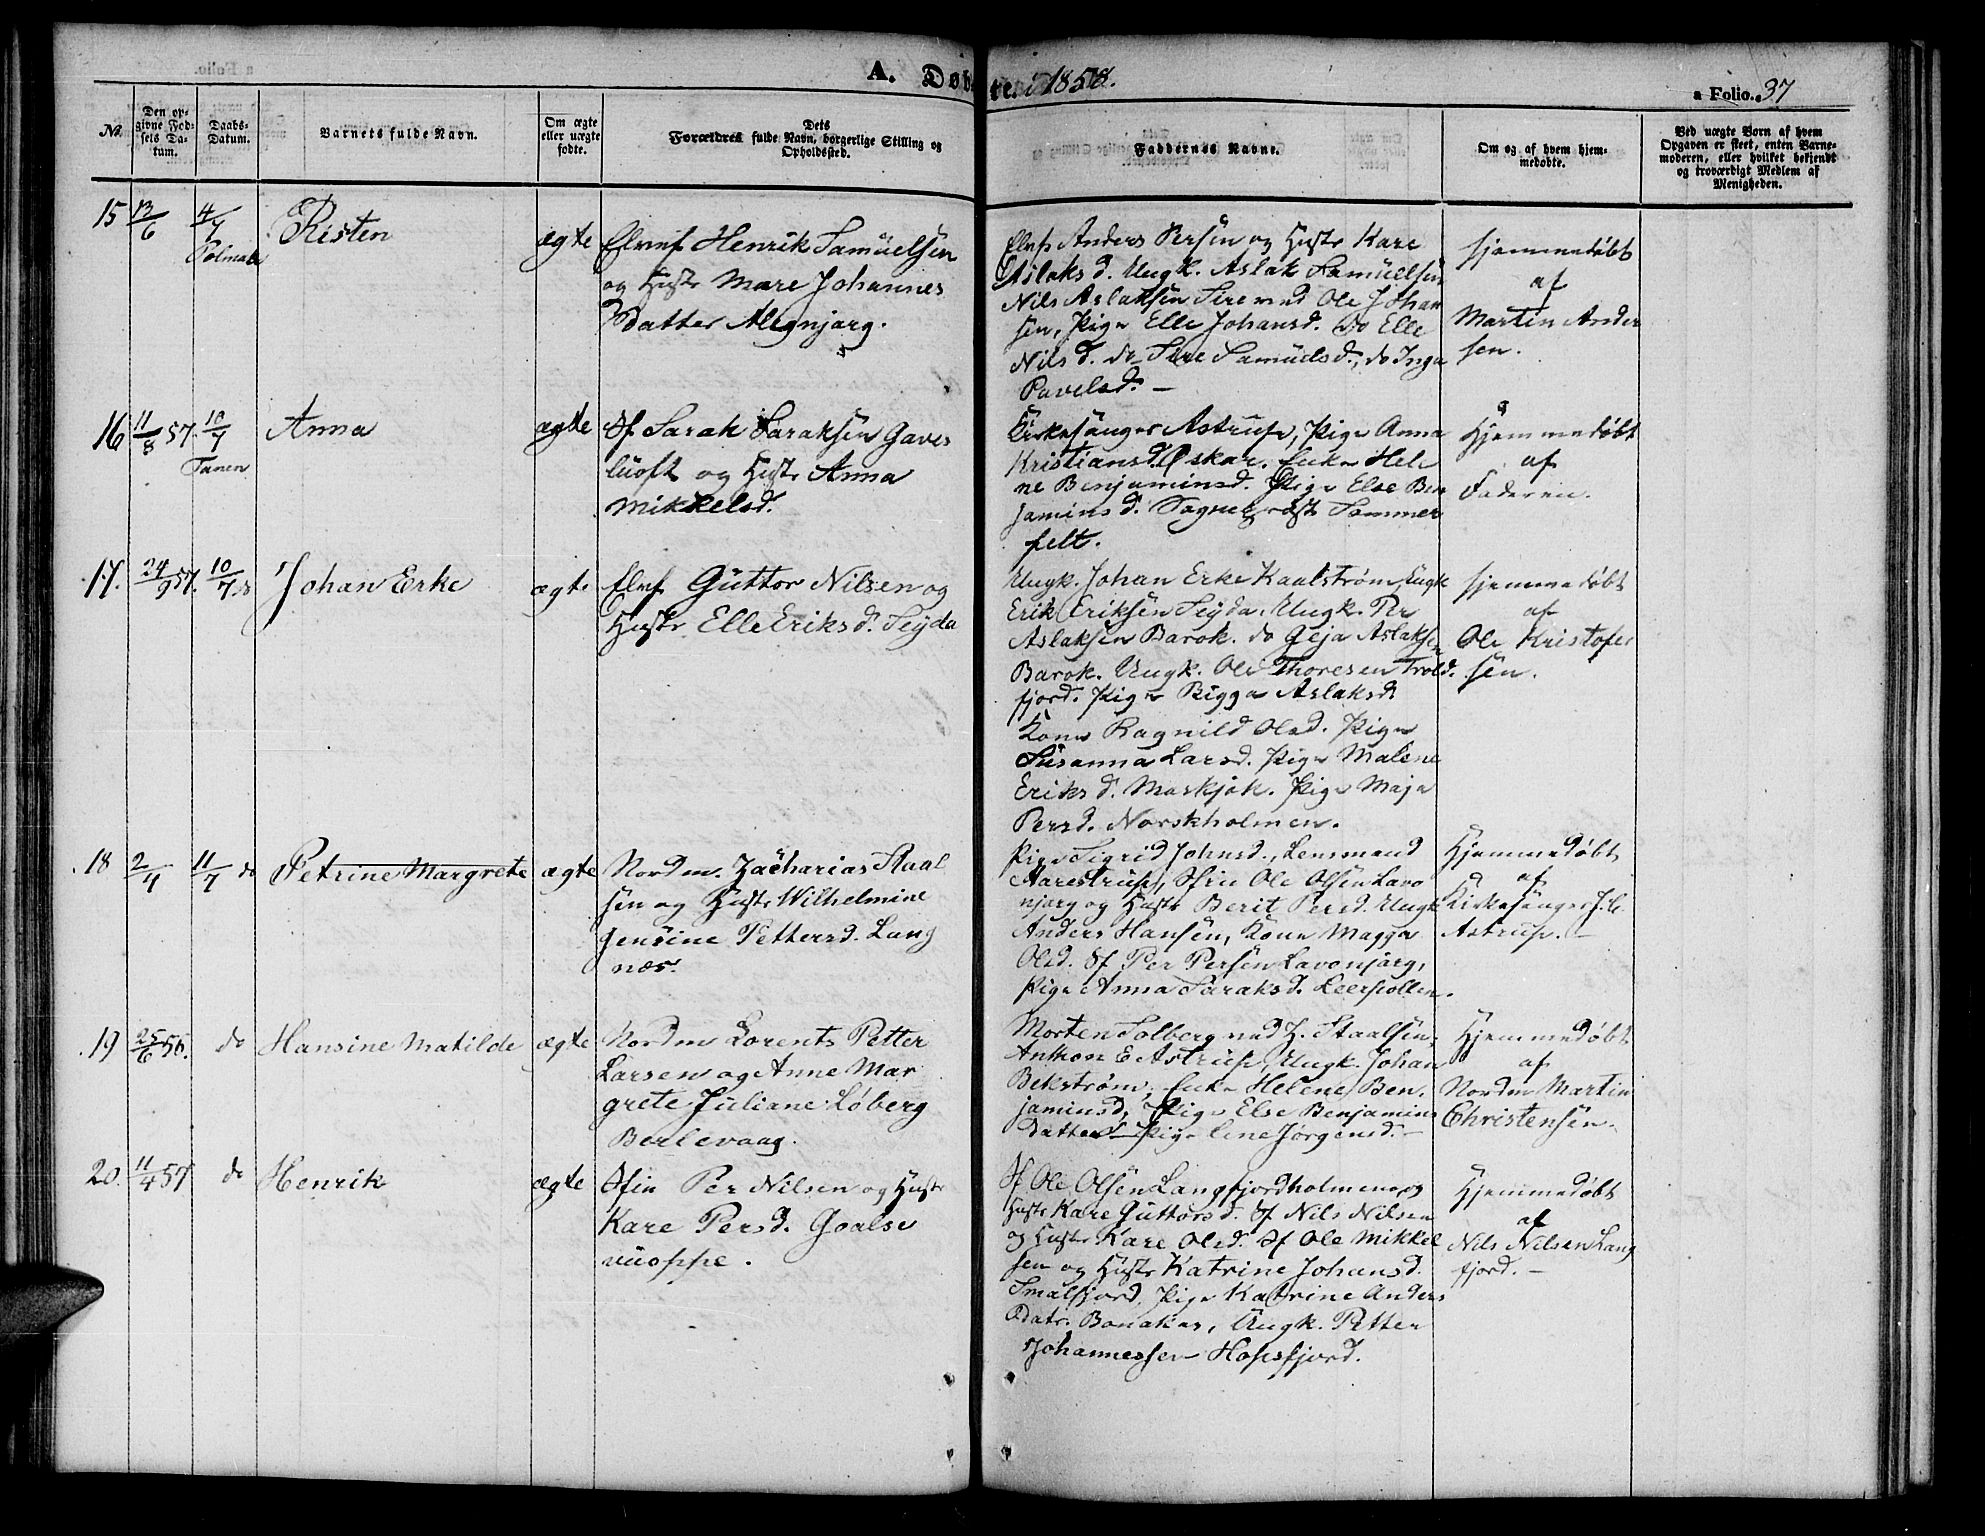 A. Døbte. i 1858.
a Folio. 37
No.
Den opgivne Fødsels Datum.
Daabs-Datum.
Barnets fulde Navn.
Om ægte eller uægte fødte.
Dets Forældres fulde Navn, borgerlige Stilling og Opholdssted.
Faddernes Navne.
Om og af hvem hjemmedøbte.
Ved uægte Børn af hvem Opgaven er skeet, enten Barnemoderen, eller hvilket bekjendt og troværdigt Medlem af Menigheden.
15 13/6 4/7 Polmak
Risten
ægte
Elvef Henrik Samuelsen
og Hustr Mare Johannes
Datter Alegnjarg.
Elvfs Anders Persen og Hustr Kare
Aslaksd. Ungk. Aslak Samuelsen
Nils Aslaksen Sirema Ole Johan
sen, Pige Elle Johansd. do Elle
Nilsd. do Sire Samuelsd., do Inga
Pavelsd. —
Hjemmedøbt
af
Martin Ander
sen.
16 11/8 57. 10/7 Tanen
Anna
ægte
Sf Sarak Saraksen Gaves
luoft og Hustr Anna
Mikkelsd.
Kirkesanger Astrup, Pige Anna
Kristiansd. Øskar. Enke Hele
ne Benjaminsd. Pige Else Ben
jaminsd. Sogneprest Sommer
felt.
Hjemmedøbt
af
Faderen.
17. 24/9 57. 10/7 do
Johan Erke
ægte
Elvf Guttor Nilsen og
Hustr. Elle Eriksd. Seyda
Ungk. Johan Erke Kaalstrøm, Ungk
Erik Eriksen Seyda, Ungk. Per
Aslaksen Barok. do Geja Aslaksen
Barok. Ungk. Ole Thoresen Trold
fjord. Pige Rigga Aslaksd.
Kone Ragnild Olsd. Pige
Susanna Larsd. Pige Malene
Eriksd. Maskjok. Pige Maja
Persd. Norskholmen.
Hjemmedøbt
af
Ole Kristofer
sen.
18 2/4 11/7 do
Petrine Margrete
ægte
Nordm. Zacharias Staal
sen og Hustr Wilhelmine
Jensine Pettersd. Lang
næs.
Pige Sigrid Johnsd., Lensmand
Aarestrup, Sfin Ole Olsen Lavo
njarg og Hustr Berit Persd. Ungk
Anders Hansen, Kone Magga
Olsd. Sf Per Persen Lavonjarg,
Pige Anna Saraksd. Leerpollen.
Hjemmedøbt
af
Kirkesanger J. C.
Astrup. —
19 25/6 56. do
Hansine Matilde
ægte
Nordm Lorents Petter
Larsen og Anne Mar
grete Juliane Løberg
Berlevaag.
Morten Solberg ved Z. Staalsen,
Anthon E Astrup, Ungk. Johan
Bekstrøm, Enke Helene Ben
jaminsd, Pige Else Benjamins
Datter Pige Line Jørgensd. —
Hjemmedøbt
af
Nordm Martin
Christensen.
20. 11/4 57 do
Henrik
ægte
Sfin Per Nilsen og Hustr
Kare Persd. Goalse
vuoppe.
Sf Ole Olsen Langfjordholmen og
Hustr Kare Guttorsd. Sf Nils Nilsen
og Hustr Kare Olsd. Sf Ole Mikkel
sen og Hustr Katrine Johansd.
Smalfjord, Pige Katrine Anders
Datr. Bonakas, Ungk. Petter
Johannessen Hopsfjord.
Hjemmedøbt
af
Nils Nilsen Lang
fjord. —